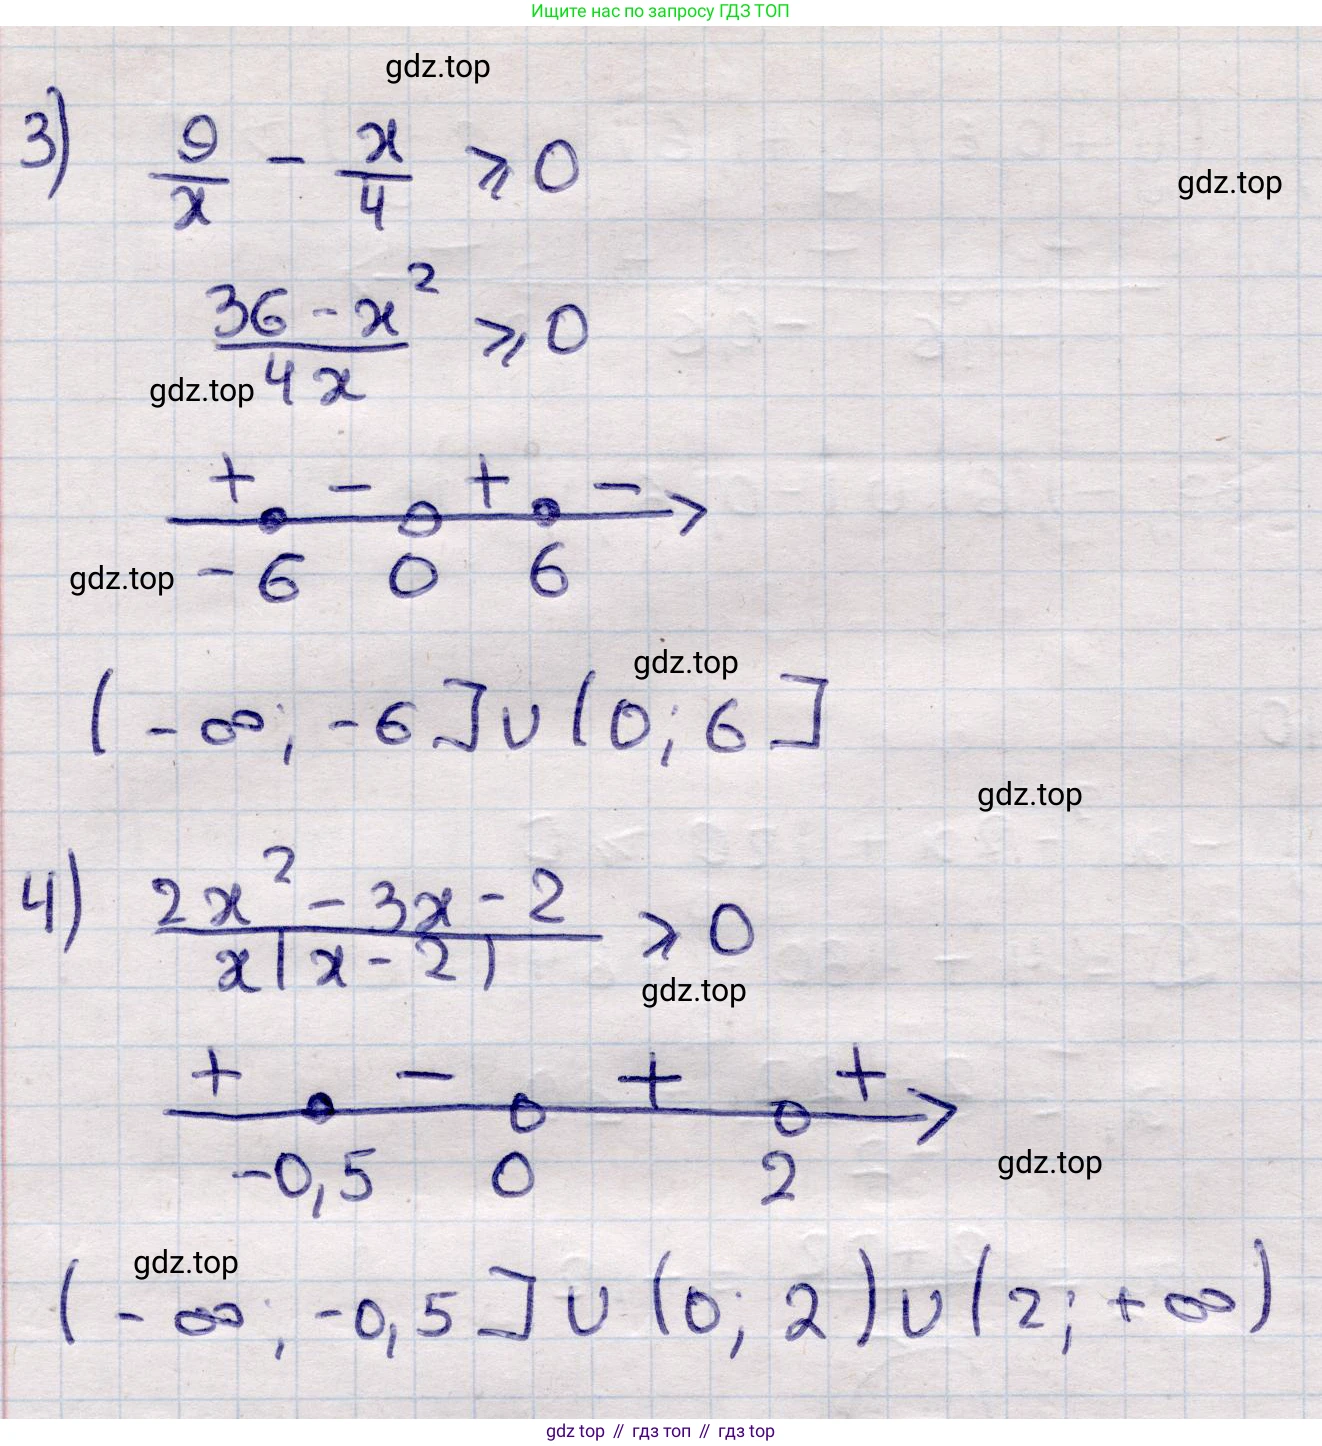 Ищите нас по запросу ГДЗ ТОП
gdz.top
3) 9/x - x/4 ⩾ 0
gdz.top
(36 - x²)/(4x) ⩾ 0
gdz.top
+ - + -
gdz.top -6 0 6
gdz.top
(-∞; -6] ∪ (0; 6]
gdz.top
4) (2x² - 3x - 2)/(x(x - 2)) ⩾ 0
gdz.top
+ - + +
-0,5 0 2
gdz.top
gdz.top
(-∞; -0,5] ∪ (0; 2) ∪ (2; +∞)
gdz top // гдз топ // gdz top